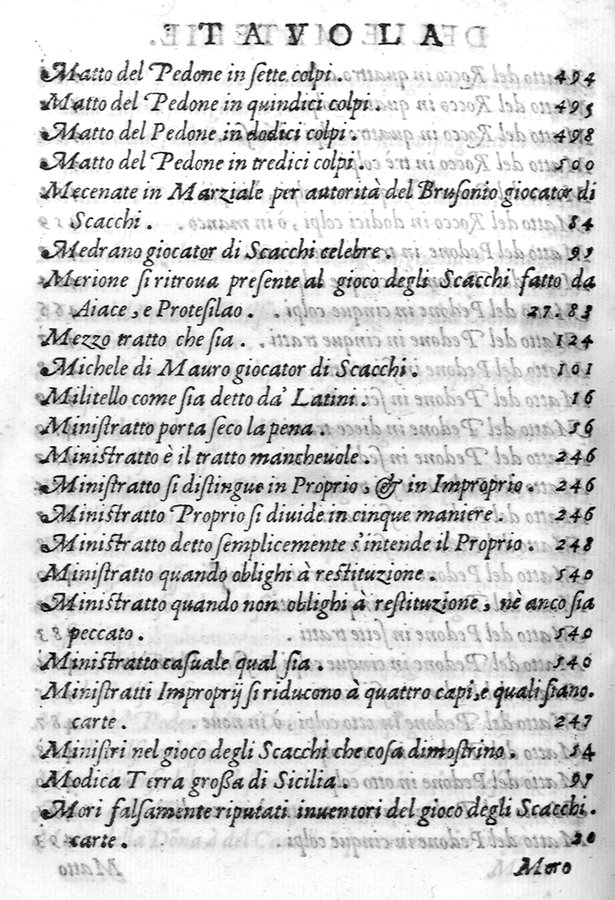 TAVOLA
Matto del Pedone in ſette colpi. 494
Matto del Pedone in quindici colpi. 495
Matto del Pedone in dodici colpi. 498
Matto del Pedone in tredici colpi. 500
Mecenate in Marziale per autorità del Bruſonio giocator di
Scacchi. 84
Medrano giocator di Scacchi celebre. 95
Merione ſi ritroua preſente al gioco degli Scacchi fatto da
Aiace, e Proteſilao. 27.83
Mezzo tratto che ſia. 124
Michele di Mauro giocator di Scacchi. 101
Militello come ſia detto da' Latini. 16
Miniſtratto porta ſeco la pena. 56
Miniſtratto è il tratto mancheuole. 246
Miniſtratto ſi diſtingue in Proprio, & in Improprio. 246
Miniſtratto Proprio ſi diuide in cinque maniere. 246
Miniſtratto detto ſemplicemente s'intende il Proprio. 248
Miniſtratto quando oblighi à reſtituzione. 540
Miniſtratto quando non oblighi à reſtituzione, nè anco ſia
peccato. 540
Miniſtratto caſuale qual ſia. 540
Miniſtratti Improprij ſi riducono à quattro capi, e quali ſiano.
carte. 247
Miniſtri nel gioco degli Scacchi che coſa dimoſtrino. 54
Modica Terra groſſa di Sicilia. 95
Mori falſamente riputati inuentori del gioco degli Scacchi.
carte. 20
Moro